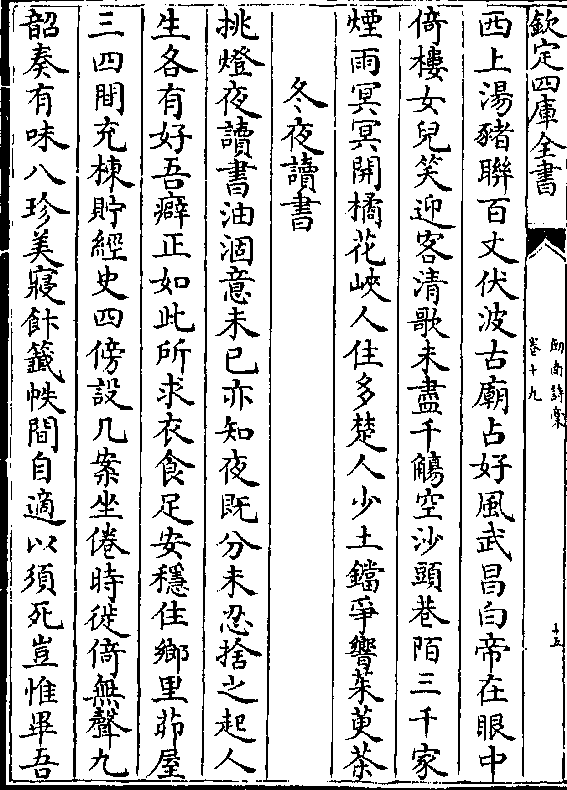 欽定四庫全書
劍南詩稾
卷十九
十五
西上湯豬聯百丈伏波古廟占好風武昌白帝在眼中
倚樓女兒笑迎客清歌未盡千觴空沙頭巷陌三千家
煙雨冥冥開橘花峽人住多楚人少土鐺爭響茱萸茶
冬夜讀書
挑燈夜讀書油涸意未已亦知夜既分未忍捨之起人
生各有好吾癖正如此所求衣食足安穩住鄉里茆屋
三四間充棟貯經史四傍設几案坐倦時徙倚無聲九
韶奏有味八珍美寢飰籖帙間自適以須死豈惟畢吾